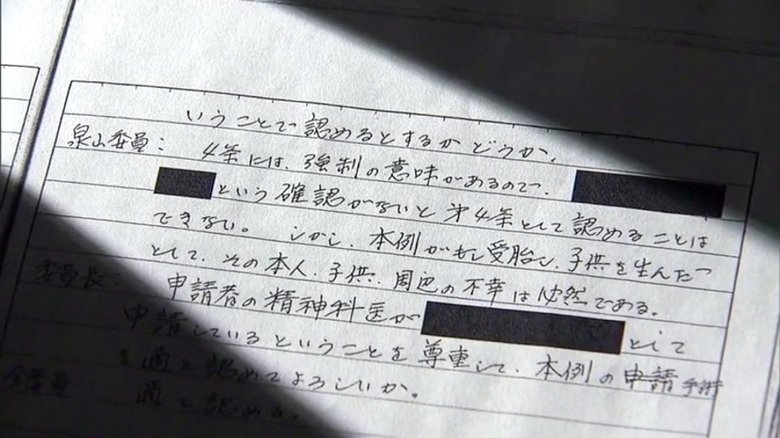 いうことで認めるとするかどうか。
泉山委員： 4条には、強制の意味があるので、
という確認がないと第4条として認めることは
できない。しかし、本例がもし受胎し、子供を生んだと
して、その本人、子供、周辺の不幸は必然である。
委員長： 申請者の精神科医が として
申請しているということを尊重して、本例の申請手術
を適と認めてよろしいか。
全委員 適と認める。